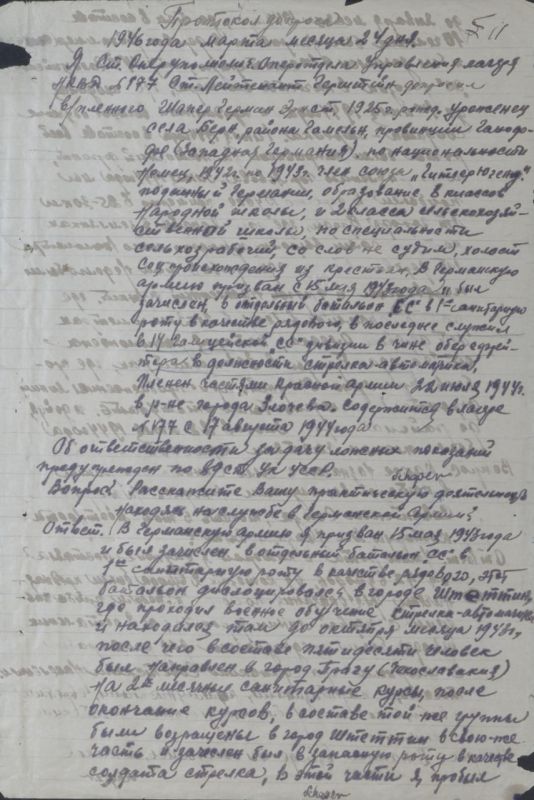 Протокол допроса
5 11
1946 года марта месяца 24 дня.
Я Ст. Оперуполномоч. Оперотдела Управления лагеря
НКВД №177 Ст. Лейтенант Герштейн допросил
в/пленного Шапер Герман Эрнст, 1925 г. рожд. Уроженец
села Бере, района Гамельн, провинции Ганно-
фре (Западная Германия). по национальности
Немец, 1942г. по 1943г. член союза „Гитлерюгенд".
подданный Германии, образование, 8 классов
Народной школы, и 2 класса сельскохозяй-
ственной школы, по специальности
сельхозрабочий, со слов не судим, холост
Соц происхождения из крестьян, В Германскую
армию призван с 15 мая 1943 года и был
зачислен, в отдельный батальон „СС" в 1ую санитарную
роту в качестве рядового, в последнее служил
в 14 Галицейской „СС" дивизии в чине оберефрей-
тера в должности стрелка-автоматчика.
Пленен частями Красной армии 22 июля 1944г.
в р-не города Злочева. Содержится в лагере
№177 с 17 августа 1944 года
Об ответственности за дачу ложных показаний
предупрежден по ст. УК УССР.
Вопрос: Расскажите Вашу практическую деятельность
находясь на службе в Германской Армии?
Ответ: В Германскую армию я призван 15 мая 1943 года
и был зачислен в отдельный батальон „СС" в
1ую санитарную роту в качестве рядового, этот
батальон дислоцировался в городе Штеттин,
где проходил военное обучение стрелка-автоматчика
и находился там до октября месяца 1943г.,
после чего в составе пятидесяти человек
был направлен в город Прагу (Чехославакия)
на 2х месячные санитарные курсы, после
окончание курсов, в составе той же группы
были возращены в город Штеттин в свою же
часть и зачислен был в запасную роту в качестве
солдата стрелка, В этой части я пробыл